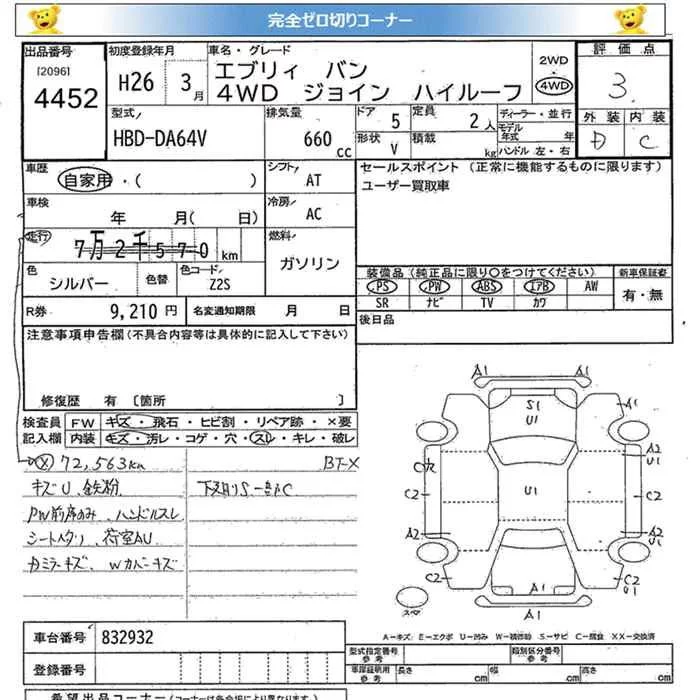 完全ゼロ切りコーナー
出品番号 初度登録年月 車名・グレード 評価点
[2096] H26 3月 エブリィ バン 2WD
4452 4WD ジョイン ハイルーフ 4WD 3
型式 排気量 ドア 5 定員 2人 ディーラー・並行 外装 内装
HBD-DA64V 660cc 形状 V 積載 kg モデル年式 年 D C
ハンドル 左・右
車歴 自家用・( ) シフト AT セールスポイント (正常に機能するものに限ります)
ユーザー買取車
車検 年 月(日) 冷房 AC
走行 7万2千570km 燃料 ガソリン
色 シルバー 色替 色コード Z2S 装備品(純正品に限り○をつけてください) 新車保証書
PS PW ABS エアB AW 有・無
SR ナビ TV カワ
R券 9,210円 名変通知期限 月 日 後日品
注意事項申告欄(不具合内容等は具体的に記入して下さい)
修復歴 有 [箇所 ]
検査員 FW キズ・飛石・ヒビ割・リペア跡・×要
記入欄 内装 キズ・汚レ・コゲ・穴・スレ・キレ・破レ
72,563km BT-X
キズU 鉄粉
PW前席のみ、ハンドルスレ
荷室AU
カバーキズ
A1 A1
A1 S1 A1
U1
A2
U1
C2 U1 C2
A2 A2
U1
C2 A1 C2
U1
スペア A1
A-キズ E-エクボ U-凹み W-補修跡 S-サビ C-腐食 XX-交換済
車台番号 832932 型式指定番号 参考 類別区分番号 参考
登録番号 車庫証明用 参考 長さ cm 幅 cm 高さ cm
希望出品コーナー(コーナーは各会場により異なります)